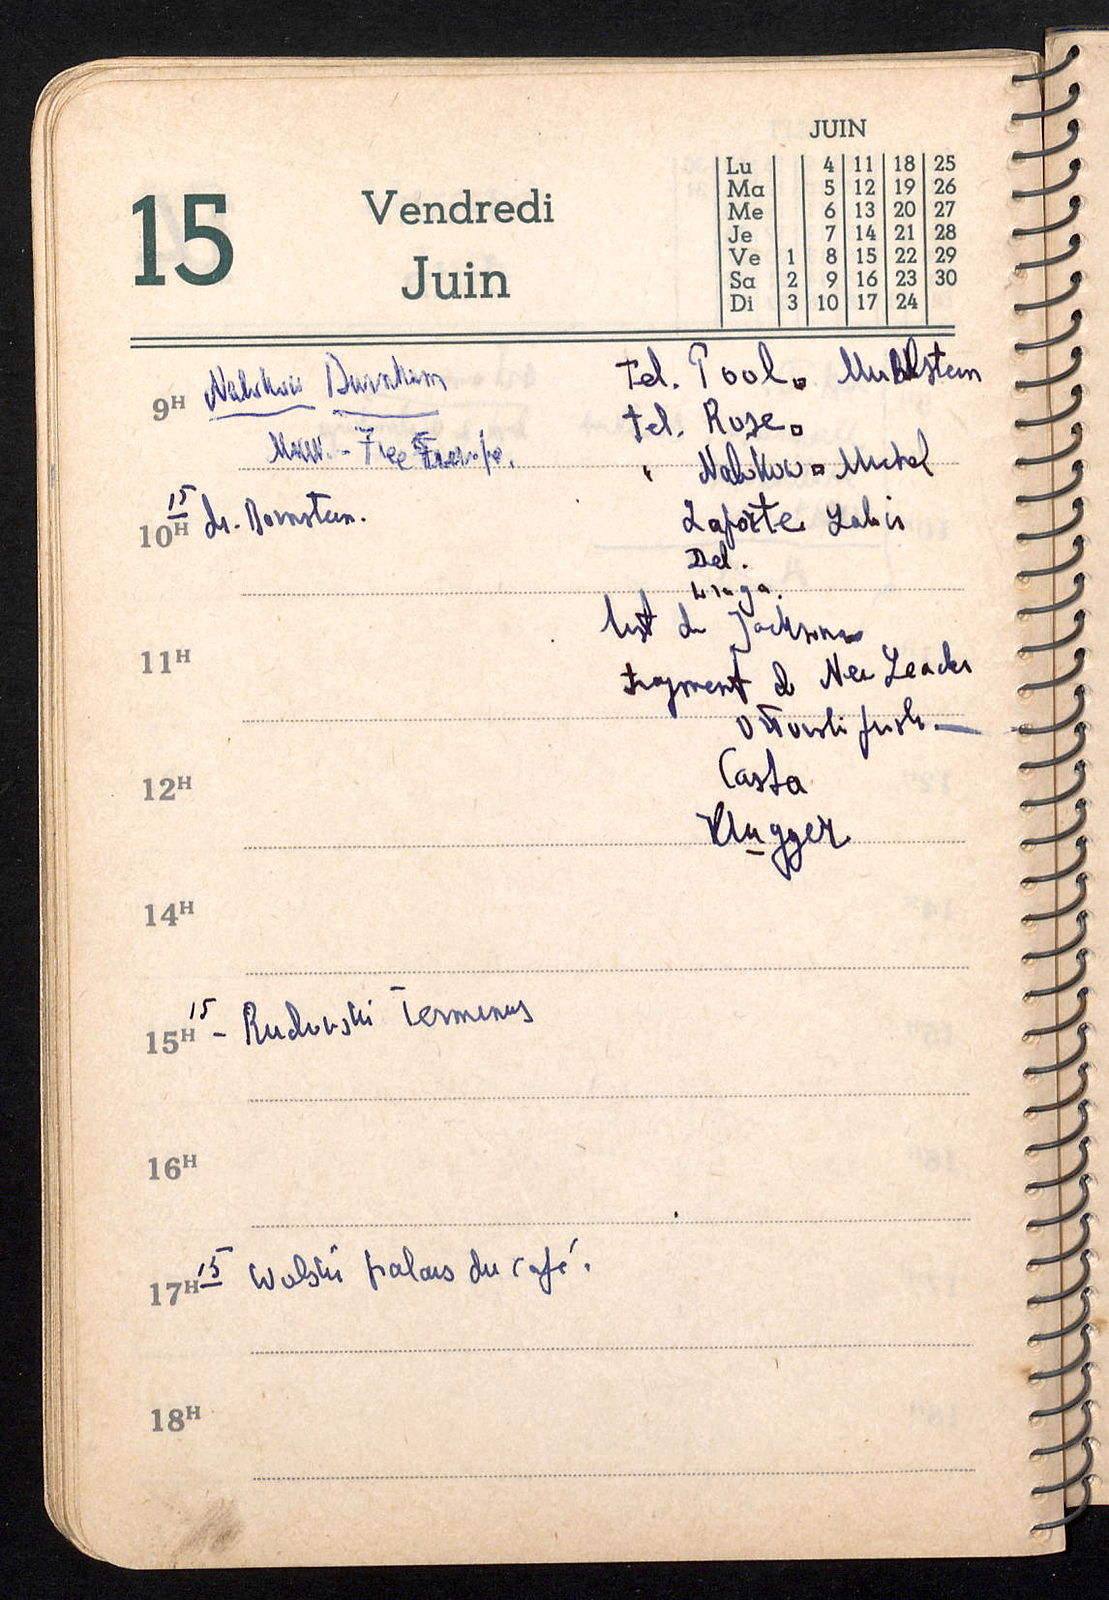 JUIN
15 Vendredi
Juin
Lu 4 11 18 25
Ma 5 12 19 26
Me 6 13 20 27
Je 7 14 21 28
Ve 1 8 15 22 29
Sa 2 9 16 23 30
Di 3 10 17 24
9H Nabokow Burnham
Free Europe.
10H 15 dr. Bornstein.
11H
12H
14H
15H 15 - Rudowski Terminus
16H
17H 15 Wolski palais du café.
18H
tel. Pool. Muhlstein
tel. Rose
" Nabokow Michel
Laporte
Del.
list do Jacksona
fragment do New Leader
Casta
Klugger